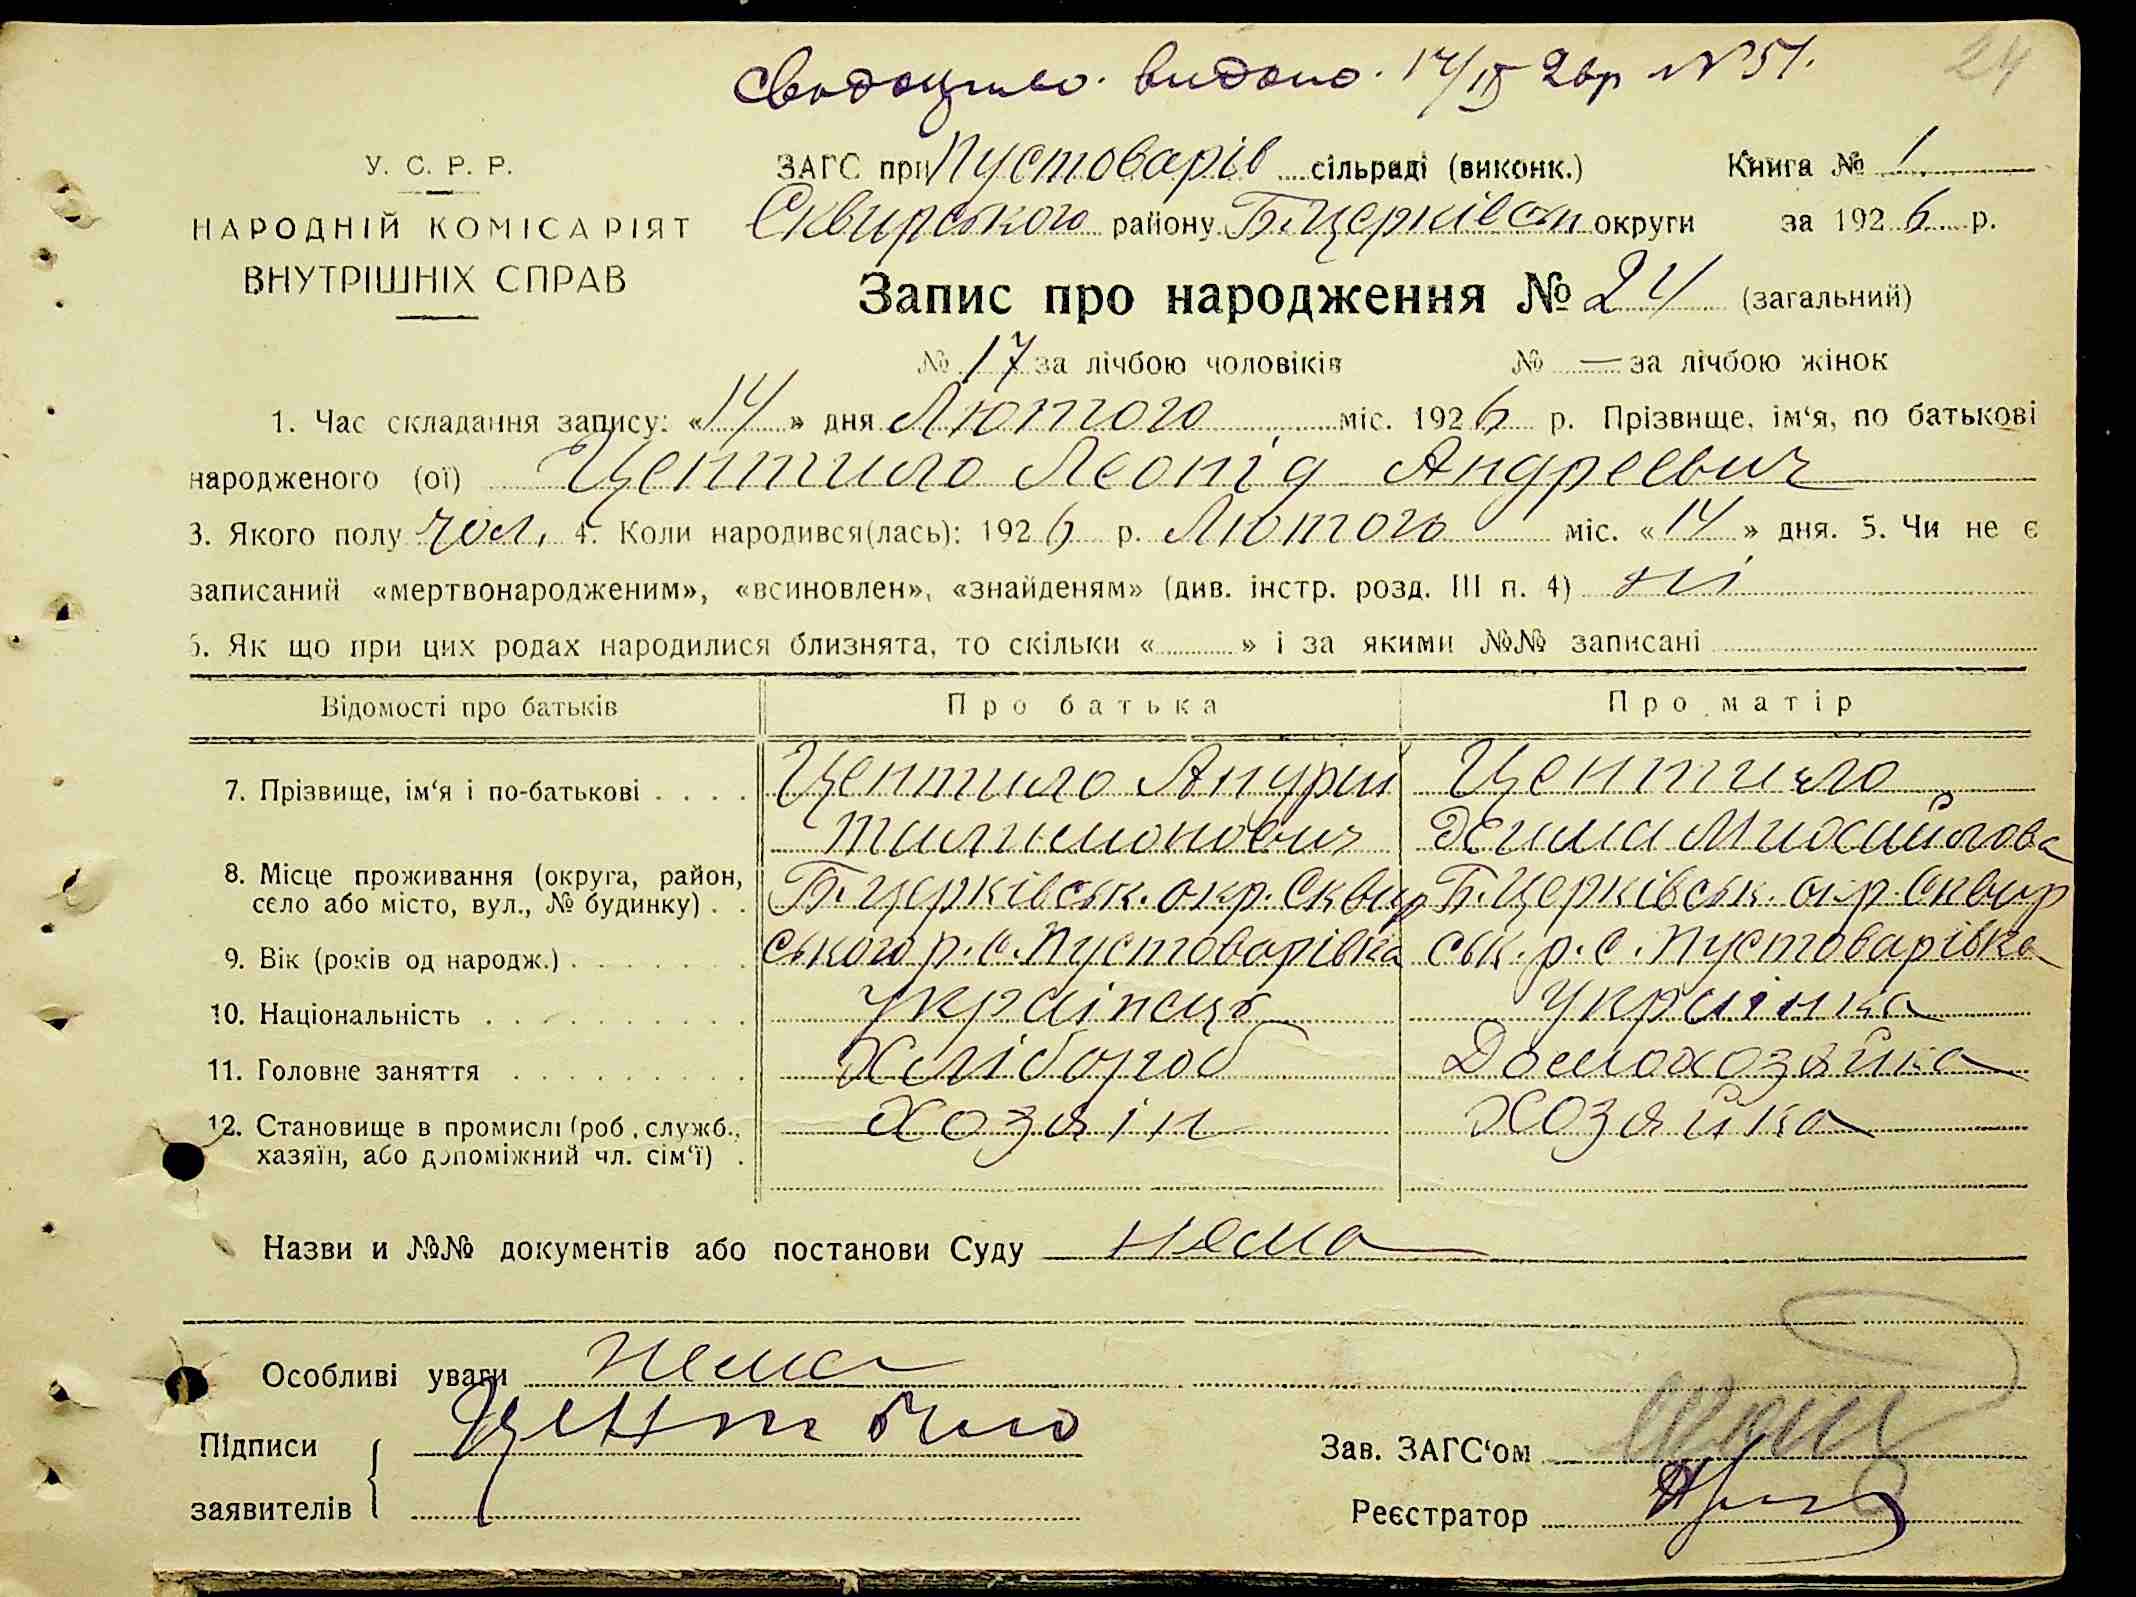 Свидоцтво видано. 14/II 26р №51.
24
У. С. Р. Р.
НАРОДНІЙ КОМІСАРІЯТ
ВНУТРІШНІХ СПРАВ
ЗАГС при Пустоварів сільраді (виконк.) Книга № 1
Сквирського району Б.Церківськ округи за 1926 р.
Запис про народження № 24 (загальний)
№ 17 за лічбою чоловіків № — за лічбою жінок
1. Час складання запису: «14» дня Лютого міс. 1926 р. Прізвище, ім‘я, по батькові
народженого (ої) Центило Леонід Андреевич
3. Якого полу чол. 4. Коли народився(лась): 1926 р. Лютого міс. «14» дня. 5. Чи не є
записаний «мертвонародженим», «всиновлен», «знайденям» (див. інстр. розд. III п. 4) ні
6. Як що при цих родах народилися близнята, то скільки « » і за якими №№ записані
Відомості про батьків Про батька Про матір
7. Прізвище, ім‘я і по-батькові . . . . Центило Андрій Центило
Тилимонович Михайлова
8. Місце проживання (округа, район, село або місто, вул., № будинку) . . Б.Церківськ. окр. Сквир Б.Церківськ. окр. Сквир
9. Вік (років од народж.) . . . . . . . ського р. с. Пустоварівка ськ. р. с. Пустоварівка
10. Національність . . . . . . . . . . українець українка
11. Головне заняття . . . . . . . . . Хлібороб Домохозяйка
12. Становище в промислі (роб., служб., хазяїн, або допоміжний чл. сім‘ї) . хозяін хозяйка
Назви и №№ документів або постанови Суду нема
Особливі уваги нема
Підписи Центило
заявителів
Зав. ЗАГС‘ом
Реєстратор